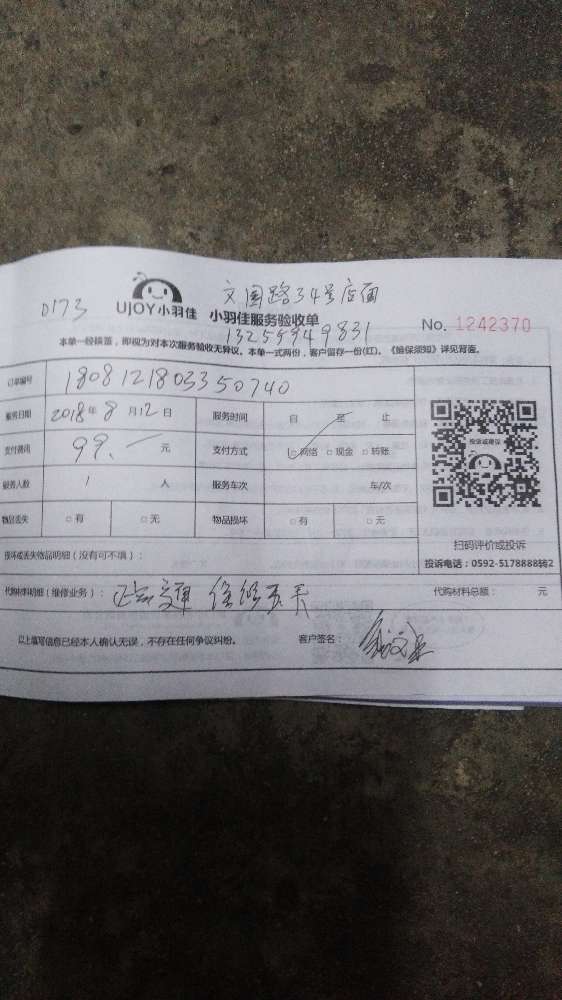 文园路34号店面
0173 UJOY小羽佳 小羽佳服务验收单 No. 1242370
13255949831
本单一经接签，即视为对本次服务验收无异议。本单一式两份，客户留存一份(红)。《维保须知》详见背面。
订单编号 1808121803350740
服务日期 2018年8月12日 服务时间 自 至 止
支付费用 99.一 元 支付方式 □网络 □现金 □转账
服务人数 1 人 服务车次 车/次
物品丢失 □有 □无 物品损坏 □有 □无
投诉或建议
扫码评价或投诉
投诉电话：0592-5178888转2
损坏或丢失物品明细（没有可不填）：
代购材料明细（维修业务）： 代购材料总额： 元
以上填写信息已经本人确认无误，不存在任何争议纠纷。 客户签名：